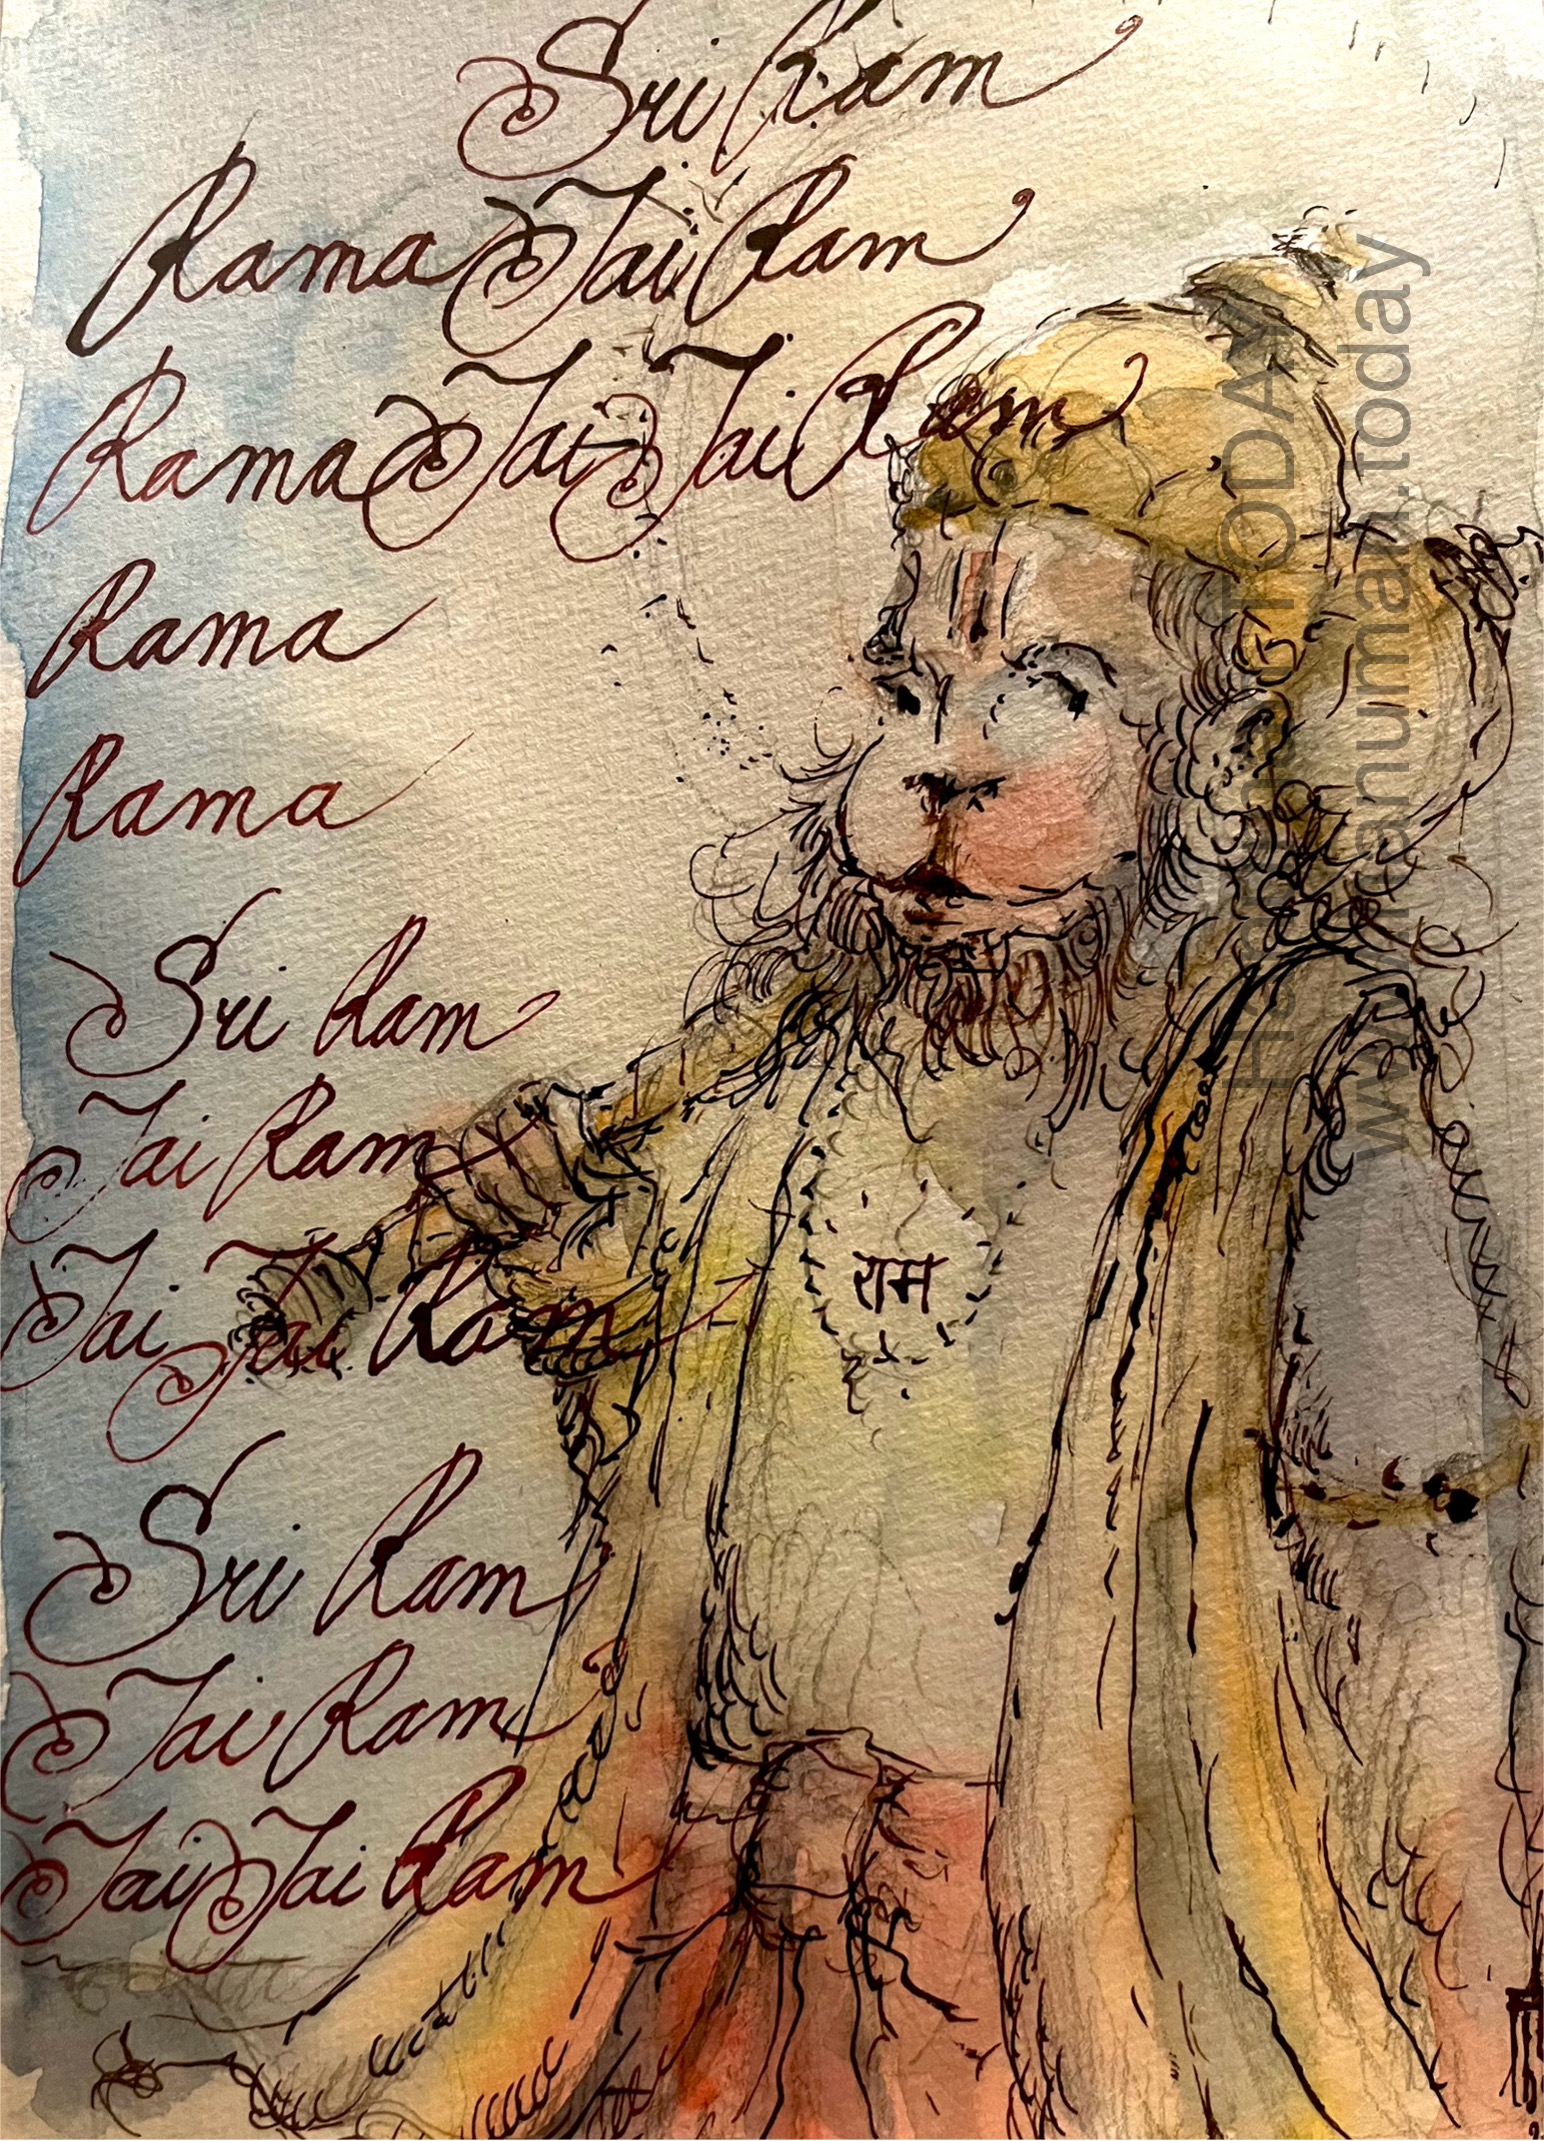 Sri Ram
Rama Jai Ram
Rama Jai Jai Ram
Rama
Rama
Sri Ram
Jai Ram
Jai Jai Ram
Sri Ram
Jai Ram
Jai Jai Ram
राम
Hanuman TODAY
www.hanuman.today